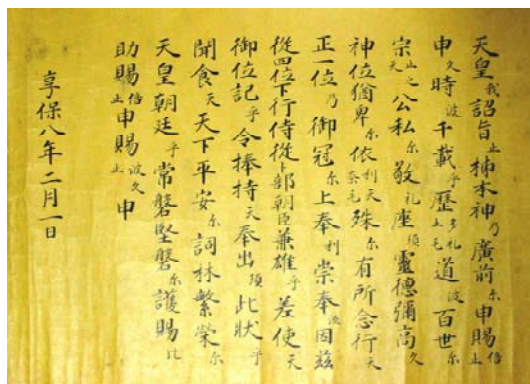 天皇我詔旨止柿本神乃廣前尓申賜倍止
申久時波千載乎歷多礼止毛道波百世尓
宗止之天公私尓敬礼座須靈德彌高久
神位猶卑尓依利天奈毛殊尓有所念行天
正一位乃御冠尓上奉利崇奉因茲
從四位下行侍從卜部朝臣兼雄乎差使天
御位記乎令捧持天奉出須此狀乎
聞食天天下平安尓詞林繁榮尓
天皇朝廷乎常磐堅磐尓護賜比
助賜倍止申賜波久止申
享保八年二月一日